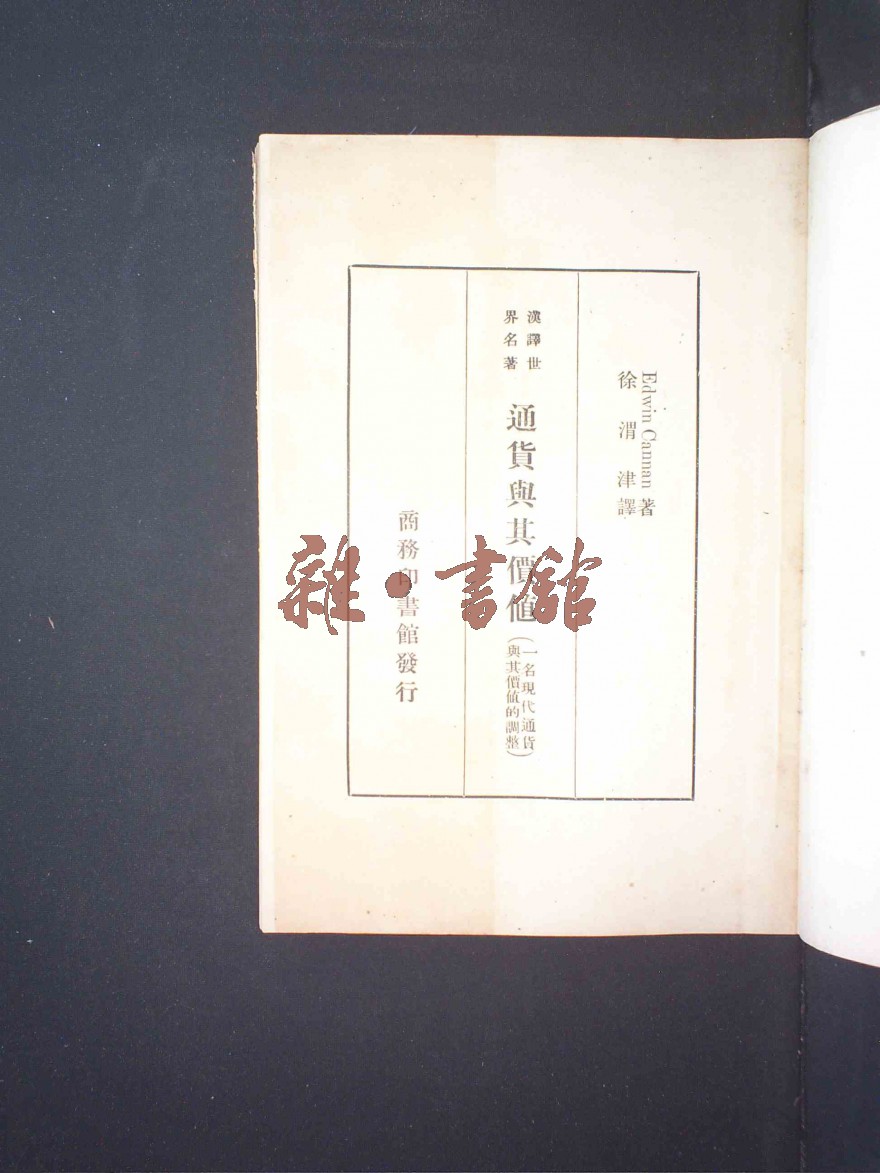 Edwin Cannan 著
徐渭津譯
漢譯世
界名著
通貨與其價值
(一名現代通貨
與其價值的調整)
商務印書館發行
雜·書館